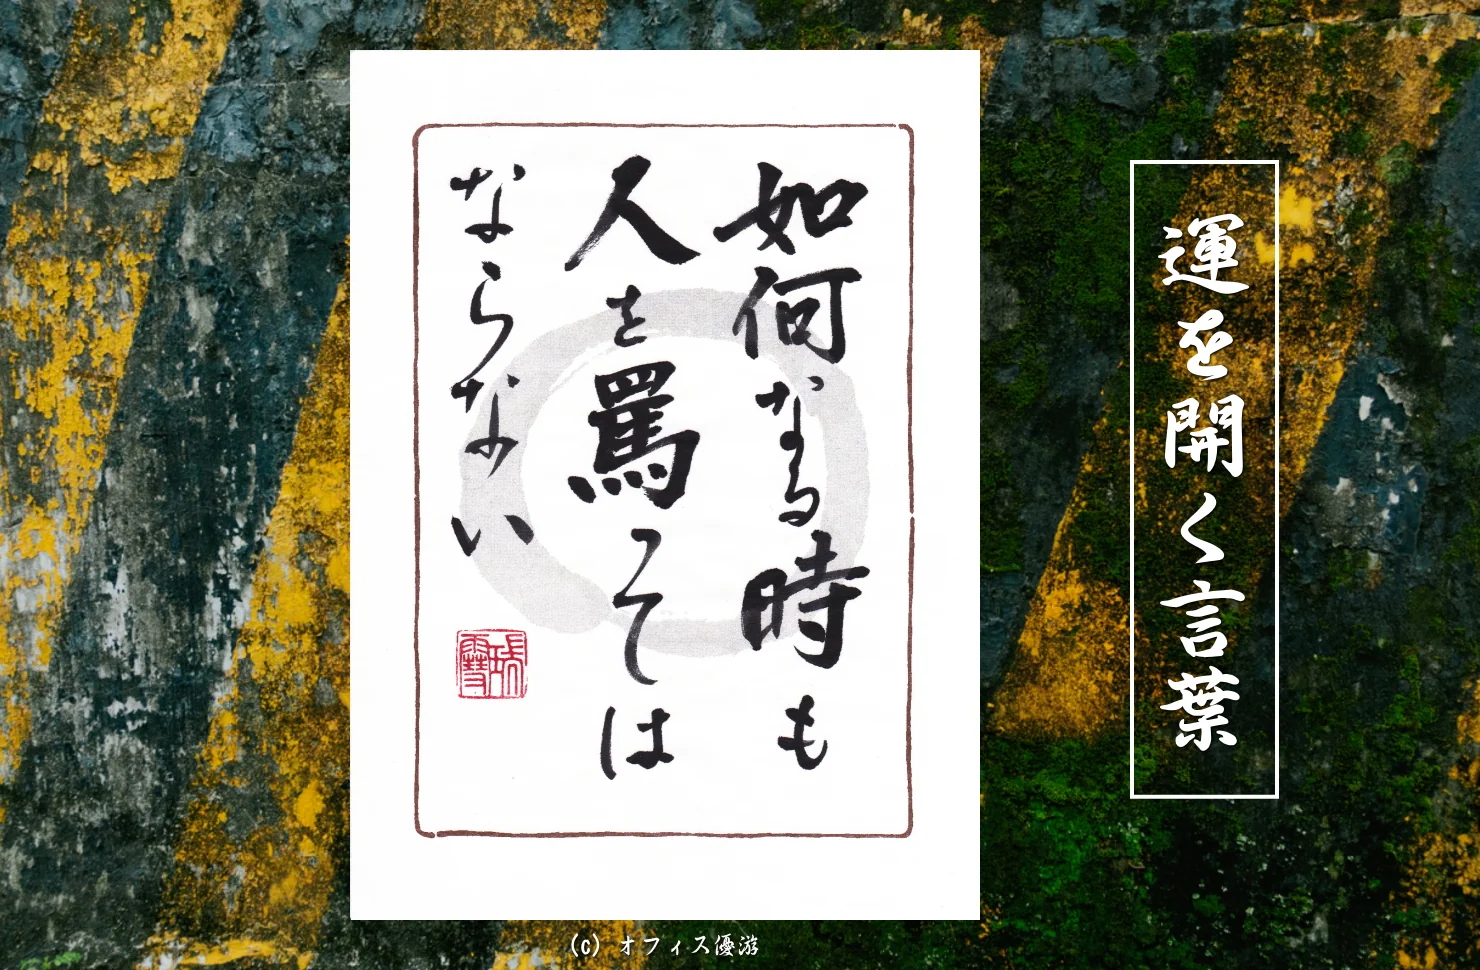 運を開く言葉
如何なる時も
人を罵っては
ならない
(c) オフィス優游